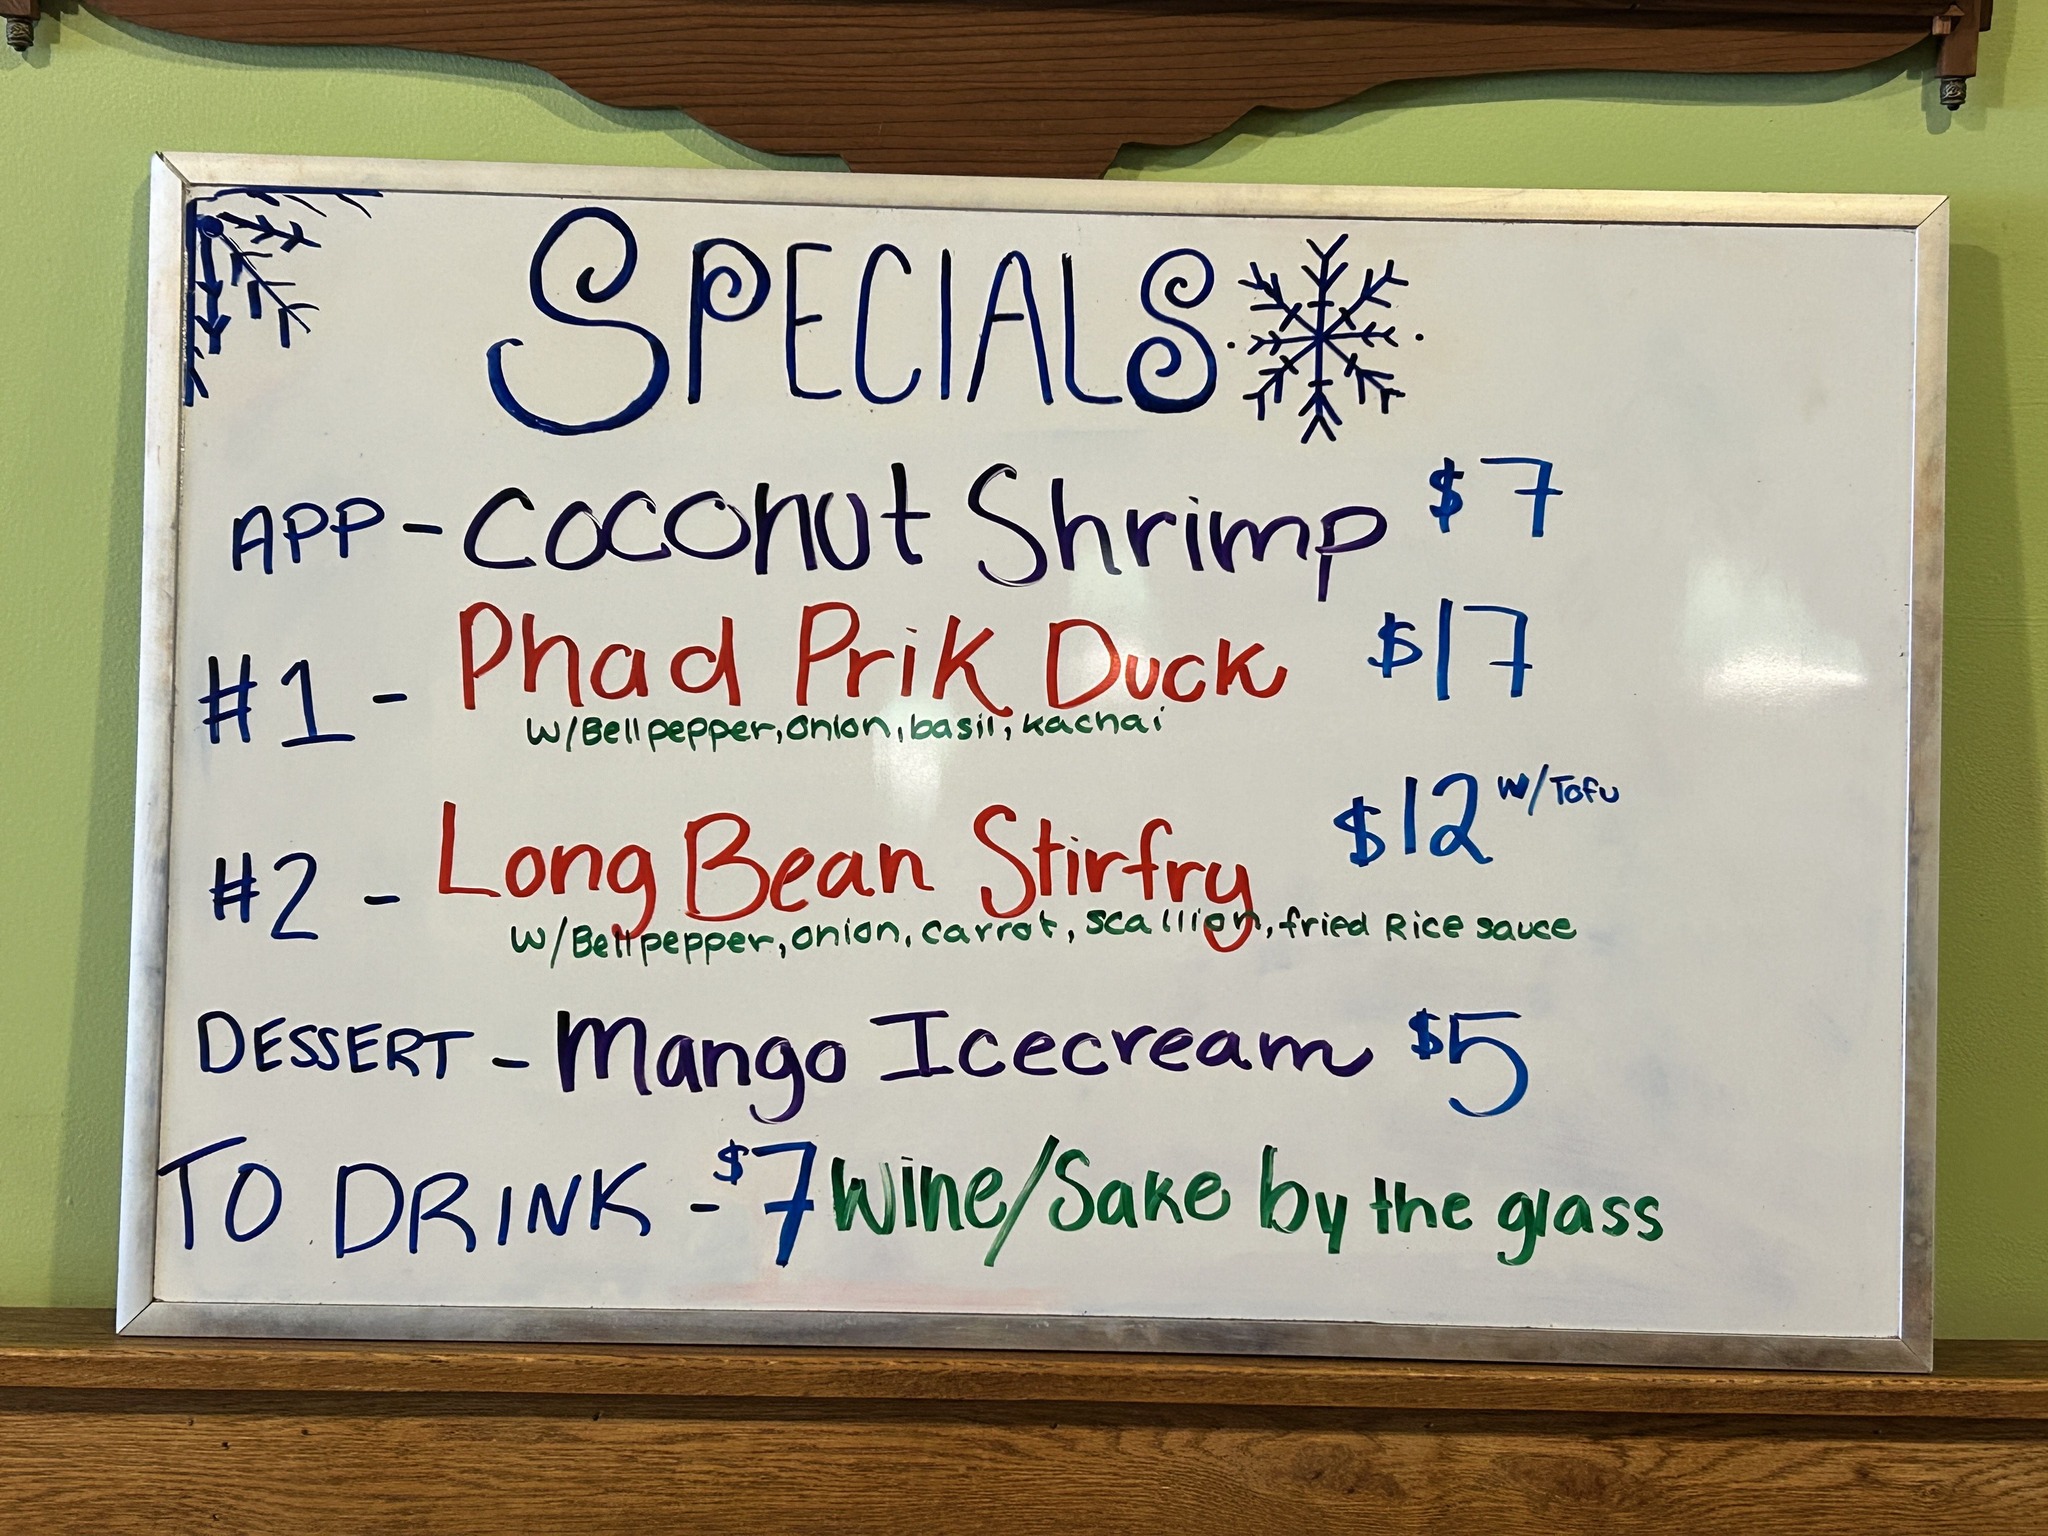 SPECIALS
APP - Coconut Shrimp $7
#1 - Phad Prik Duck $17
w/Bellpepper, onion, basil, kachai
#2 - Long Bean Stirfry $12 w/Tofu
w/Bellpepper, onion, carrot, scallion, fried Rice sauce
DESSERT - Mango Icecream $5
TO DRINK - $7 Wine/Sake by the glass